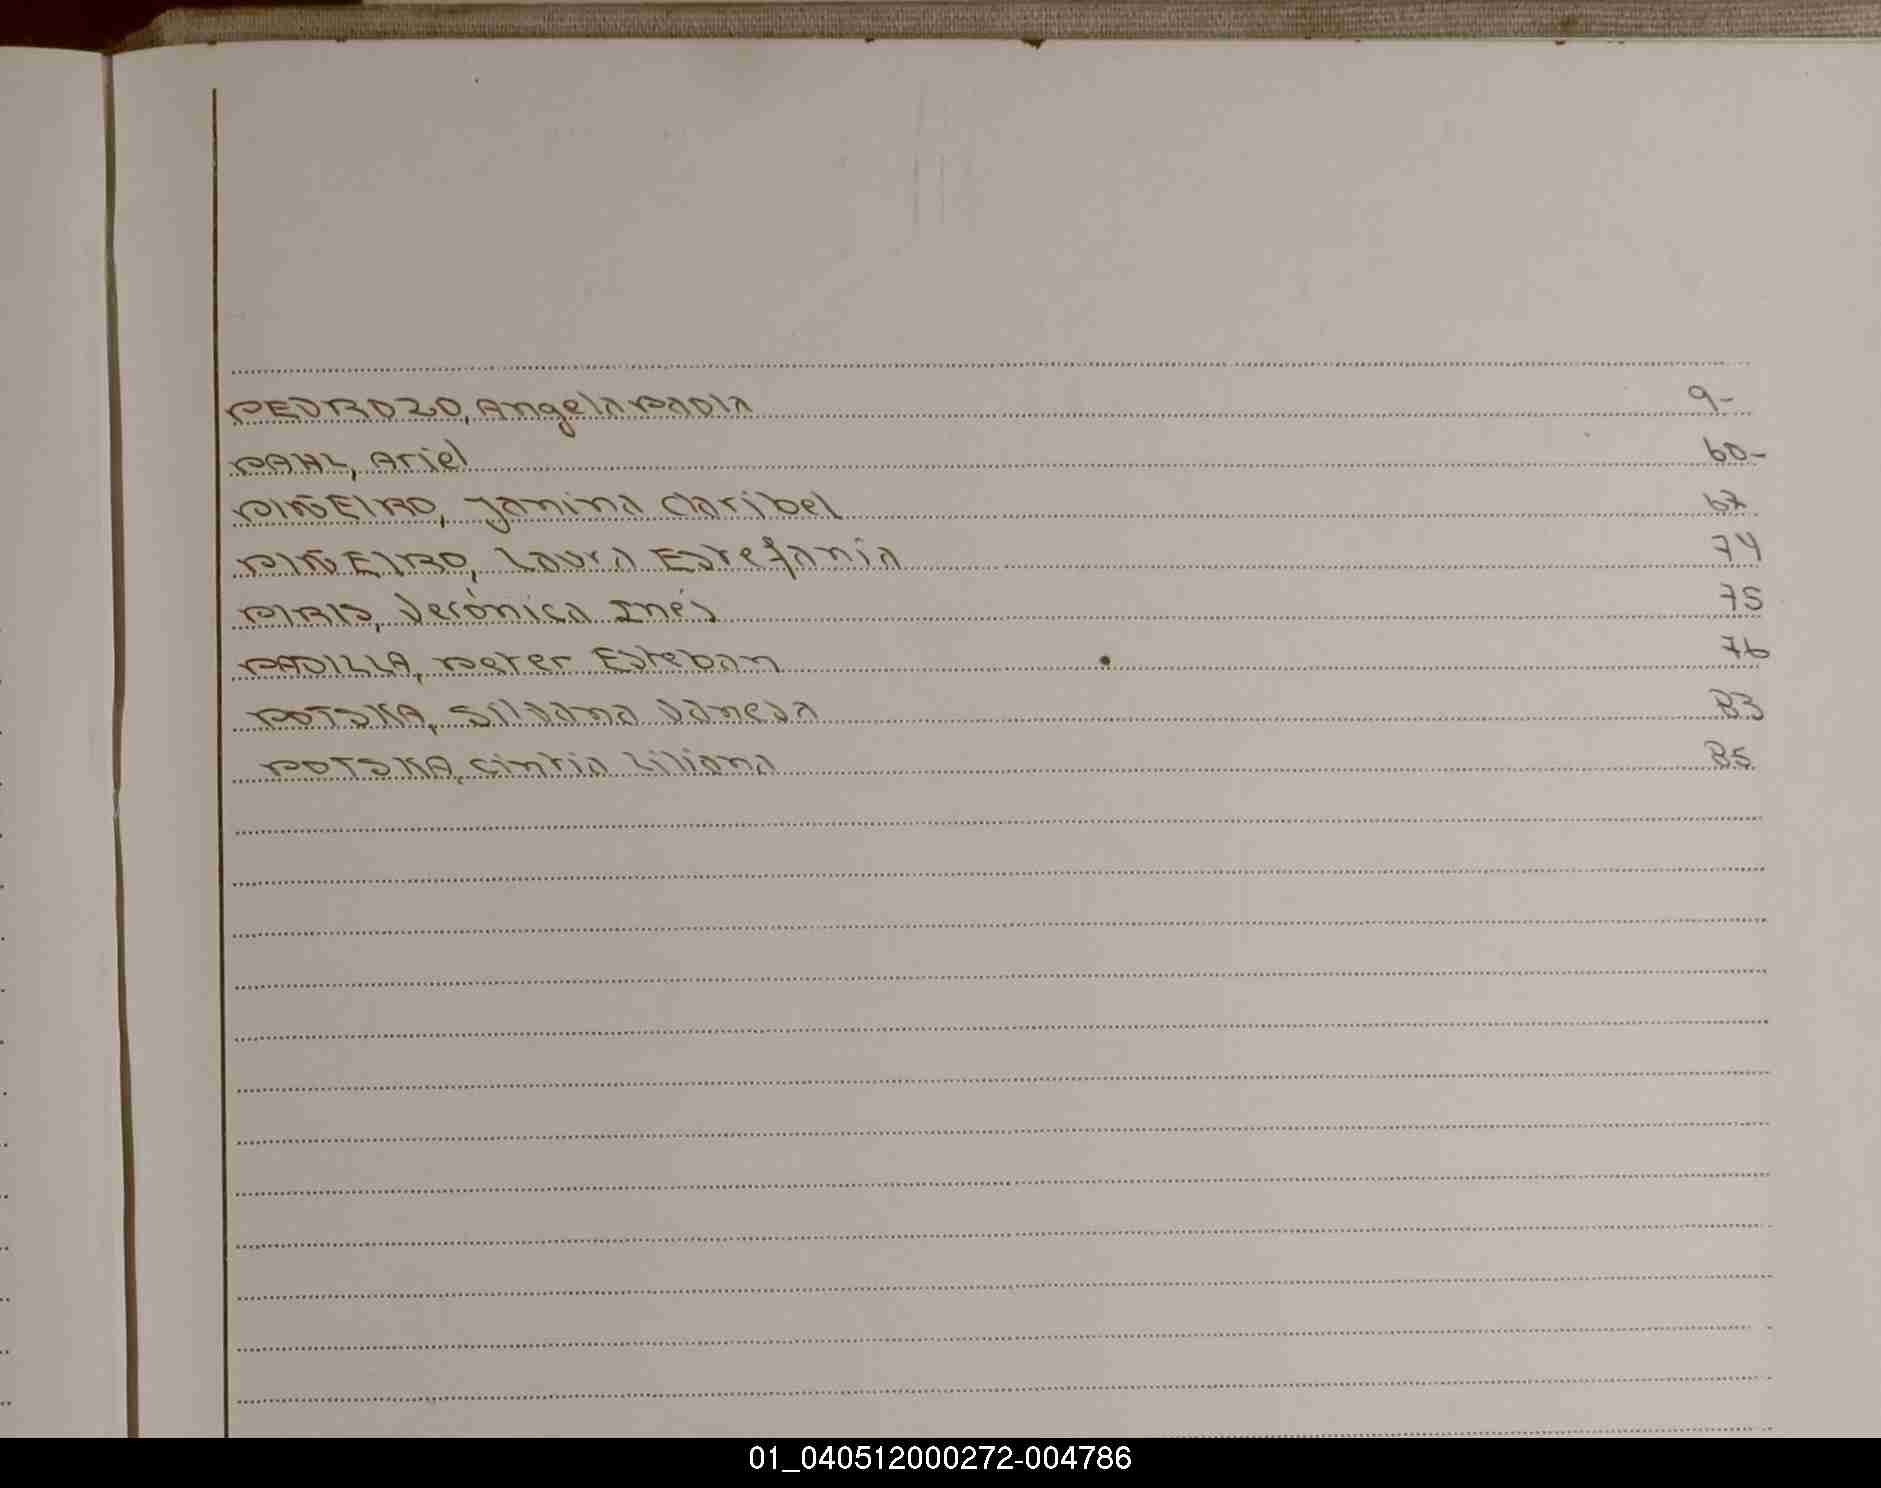 PEDROZO, Angela Paola 9-
PAHL, Ariel 60-
PIÑEIRO, Janina Claribel 67
PIÑEIRO, Laura Estefania 74
PIRIS, Verónica Inés 75
PADILLA, Peter Esteban 76
POTSKA, Silvana Vanesa 83
POTSKA, Cintia Liliana 85
01_040512000272-004786